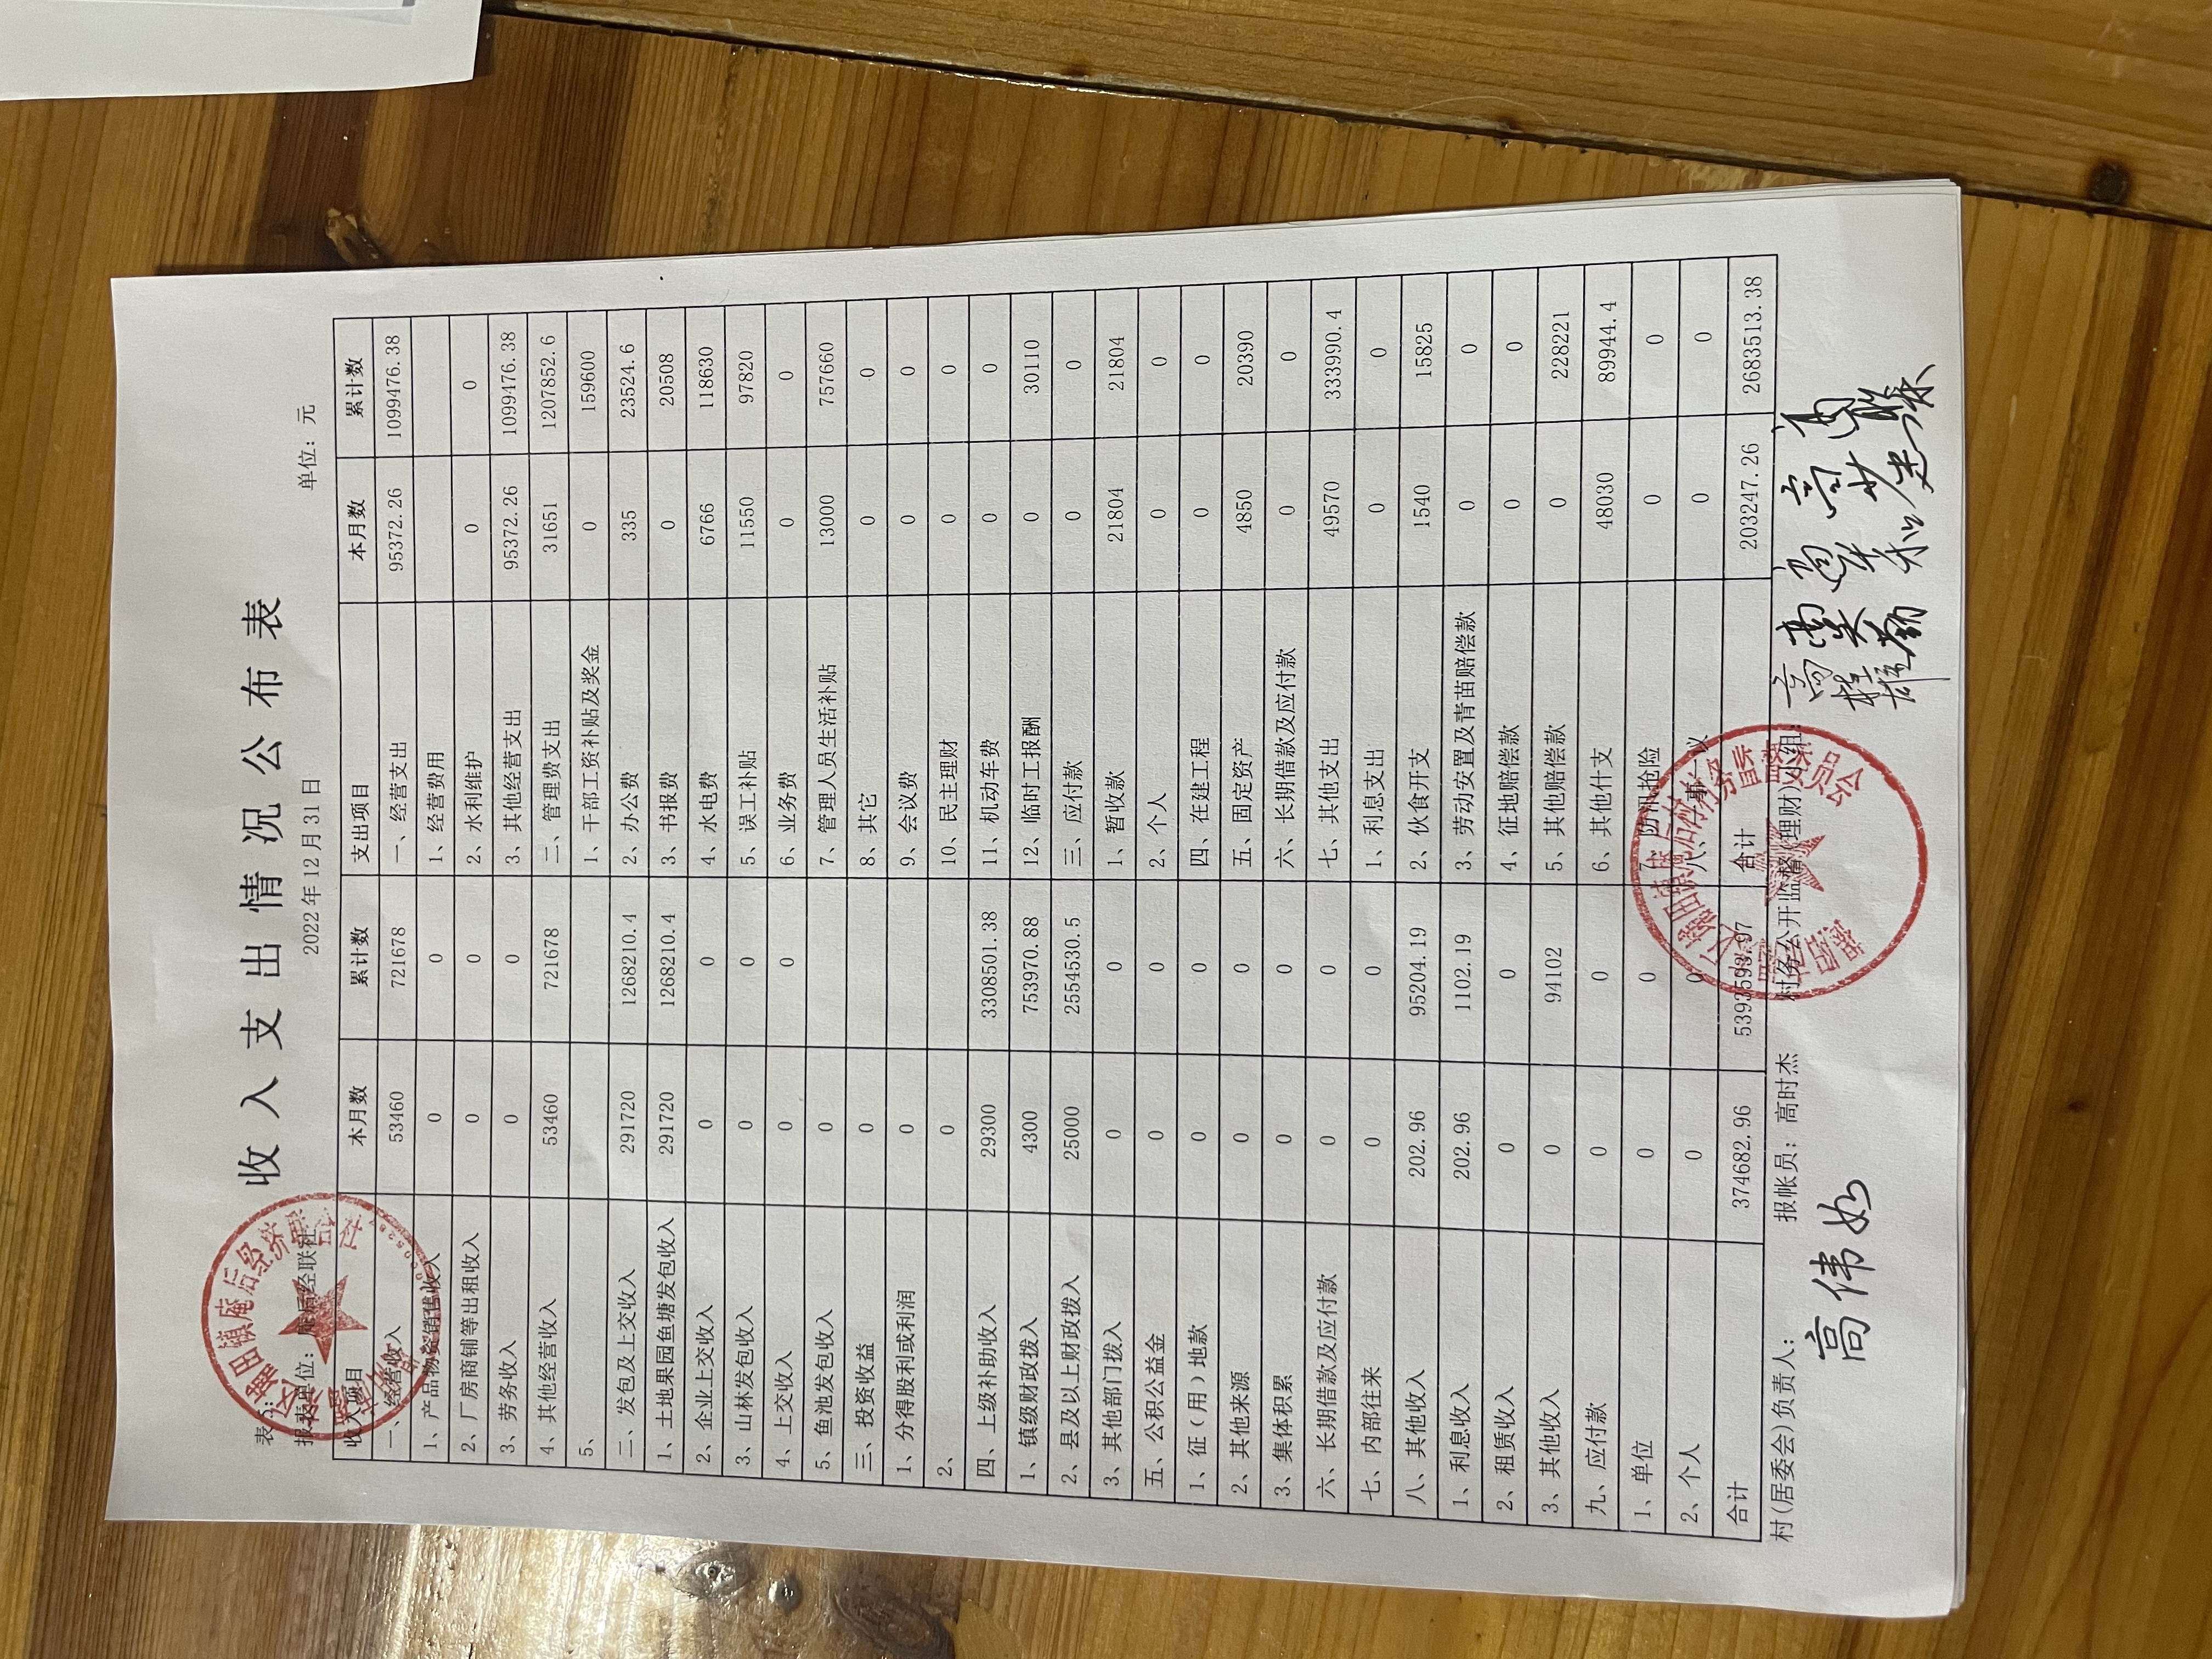 收入支出情况公布表
2022年12月31日
表5:
报表单位：庵后经联社 单位：元
收入项目 本月数 累计数 支出项目 本月数 累计数
一、经营收入 53460 721678 一、经营支出 95372.26 1099476.38
1、产品物资销售收入 0 0 1、经营费用
2、厂房商铺等出租收入 0 0 2、水利维护 0 0
3、劳务收入 0 0 3、其他经营支出 95372.26 1099476.38
4、其他经营收入 53460 721678 二、管理费支出 31651 1207852.6
5、 1、干部工资补贴及奖金 0 159600
二、发包及上交收入 291720 1268210.4 2、办公费 335 23524.6
1、土地果园鱼塘发包收入 291720 1268210.4 3、书报费 0 20508
2、企业上交收入 0 0 4、水电费 6766 118630
3、山林发包收入 0 0 5、误工补贴 11550 97820
4、上交收入 0 0 6、业务费 0 0
5、鱼池发包收入 0 7、管理人员生活补贴 13000 757660
三、投资收益 0 8、其它 0 0
1、分得股利或利润 0 9、会议费 0 0
2、 0 10、民主理财 0 0
四、上级补助收入 29300 3308501.38 11、机动车费 0 0
1、镇级财政拨入 4300 753970.88 12、临时工报酬 0 30110
2、县及以上财政拨入 25000 2554530.5 三、应付款 0 0
3、其他部门拨入 0 0 1、暂收款 21804 21804
五、公积公益金 0 0 2、个人 0 0
1、征（用）地款 0 0 四、在建工程 0 0
2、其他来源 0 0 五、固定资产 4850 20390
3、集体积累 0 0 六、长期借款及应付款 0 0
六、长期借款及应付款 0 0 七、其他支出 49570 333990.4
七、内部往来 0 0 1、利息支出 0 0
八、其他收入 202.96 95204.19 2、伙食开支 1540 15825
1、利息收入 202.96 1102.19 3、劳动安置及青苗赔偿款 0 0
2、租赁收入 0 0 4、征地赔偿款 0 0
3、其他收入 0 94102 5、其他赔偿款 0 228221
九、应付款 0 0 6、其他什支 48030 89944.4
1、单位 0 0 7、防汛抢险 0 0
2、个人 0 0 八、一事一议 0 0
合计 374682.96 5393593.97 合计 203247.26 2683513.38
村(居委会)负责人： 报帐员：高时杰 村务公开监督(理财)小组:
高伟如